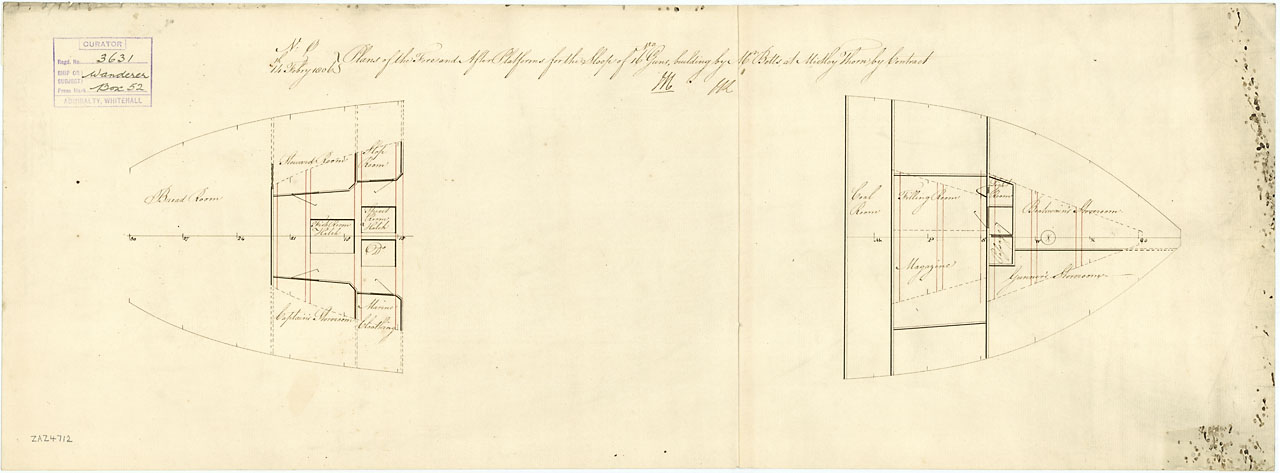 CURATOR
Regd. No. 3631
SHIP OR SUBJECT Wanderer
Press Mark Box 52
ADMIRALTY, WHITEHALL
14 Febry 1806
Plans of the Fore and After Platforms for the Sloop of Guns, building by Mr Betts at Mistley Thorn by Contract
Bread Room
Steward Room
Slop Room
Fish Room Hatch
Spirit Room Hatch
Do
Captains Storeroom
Marine Cloathing
Coal Room
Filling Room
Magazine
Boatswains Storeroom
Gunners Storeroom
ZAZ4712